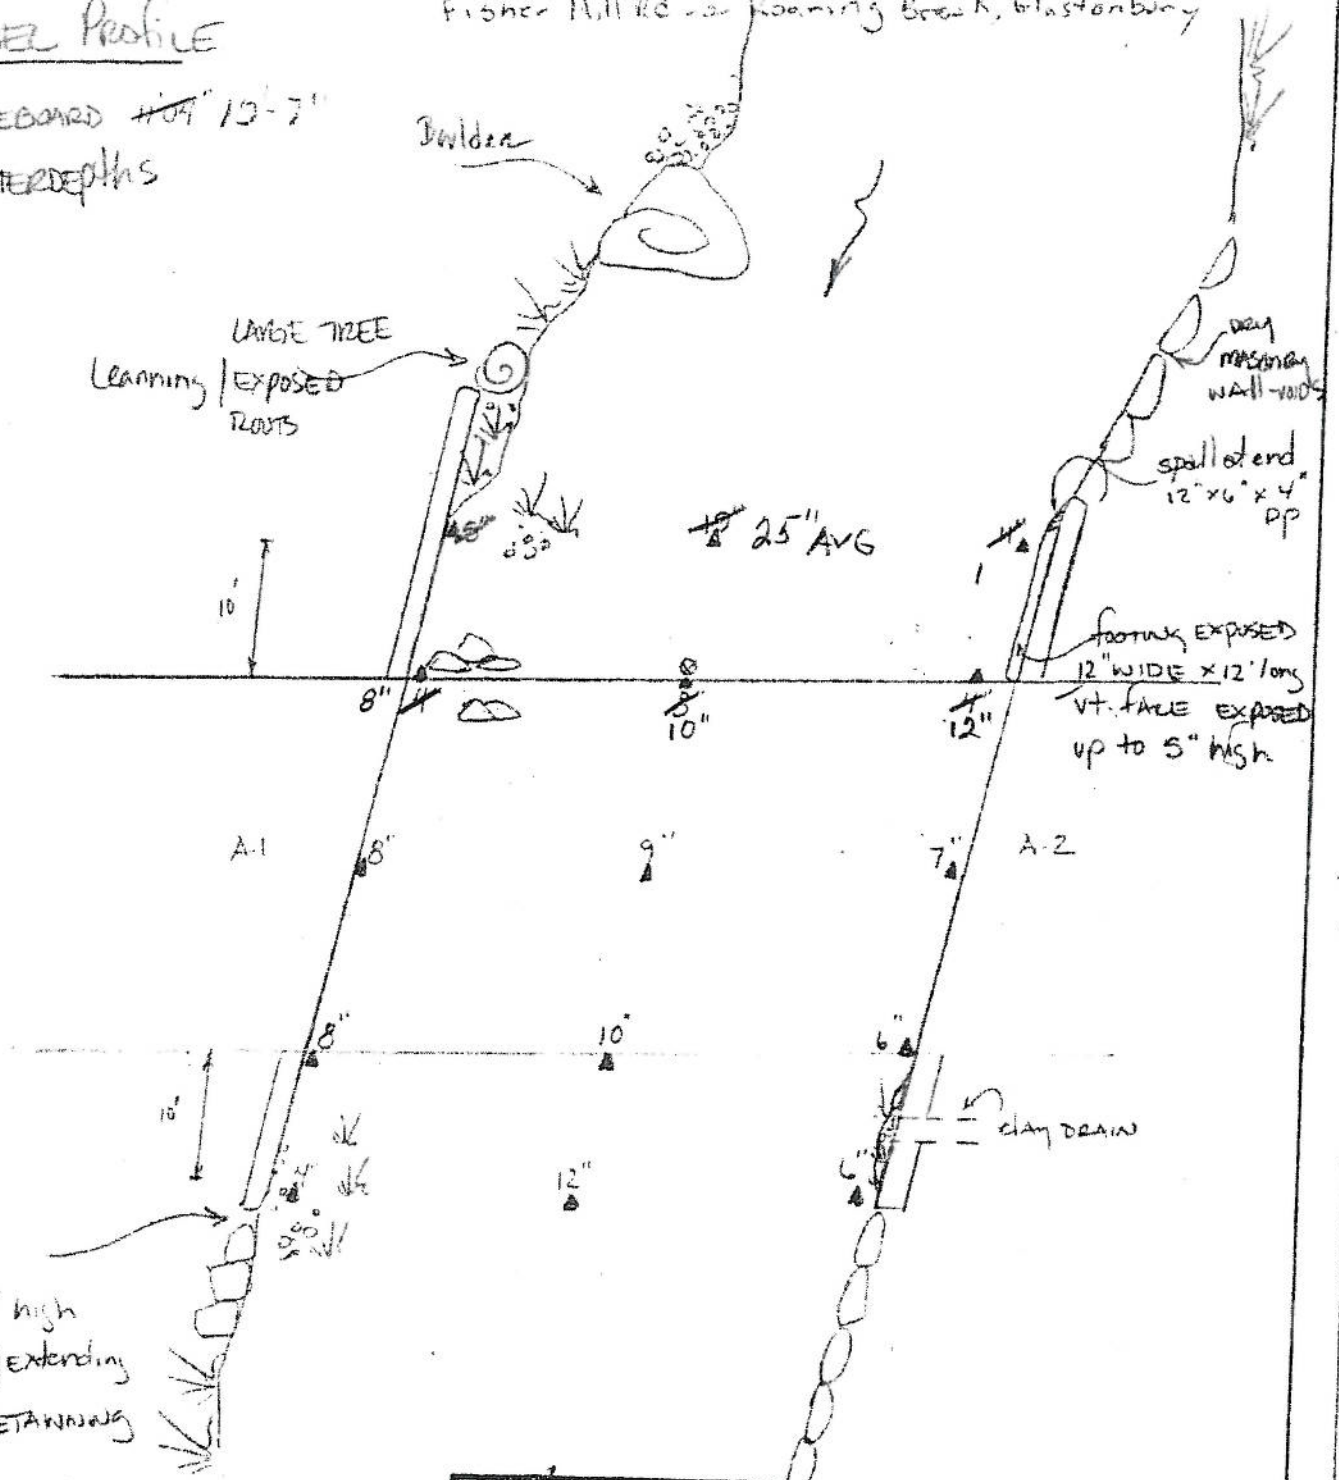 Fisher Mill Rd Roaming Brook, Glastonbury
EL PROFILE
EBOARD 10'-7"
TERDEPTHS
Boulder
LARGE TREE
Leanning / EXPOSED
ROOTS
DRY
MASONRY
WALL-VOIDS
spall at end
12" x 6" x 4"
DP
25" AVG
1
10'
footing EXPOSED
12" WIDE x 12' long
vt. face EXPOSED
up to 5" high
8" 4
8
10"
4
12"
A-1
8"
9"
7"
A-2
8"
10"
6"
10'
clay DRAIN
4"
12"
6"
high
Extending
ETAINNING